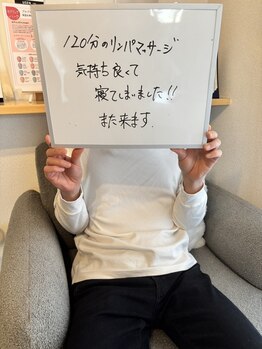 120分のリンパマッサージ
気持ち良くて
寝てしまいました!!
また来ます.